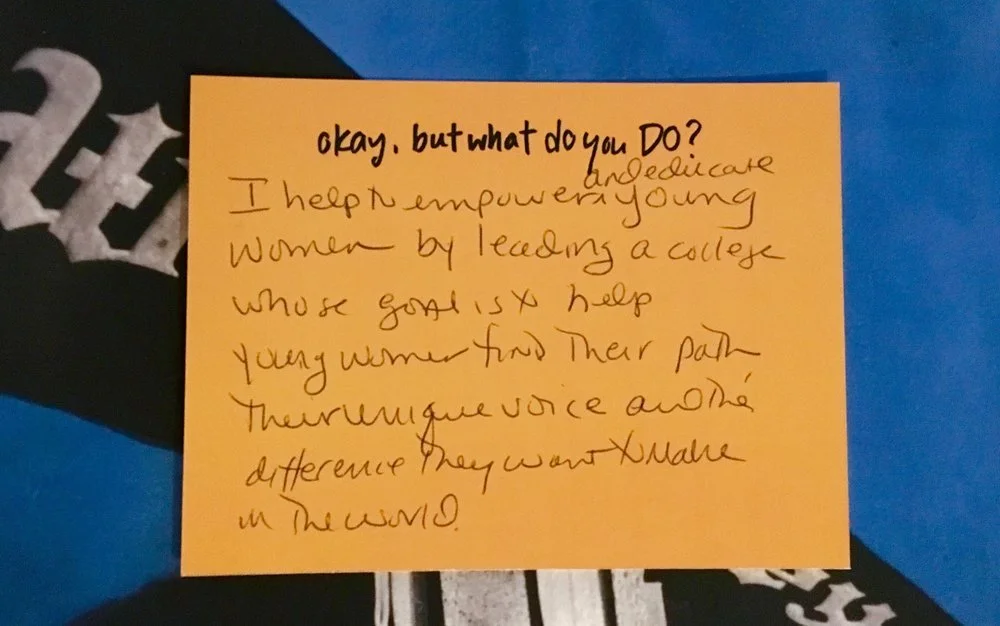 okay, but what do you DO?
and educate
I help to empower ^ young
women by leading a college
whose goal is to help
young women find their path
their unique voice and the
difference they want to make
in the world.